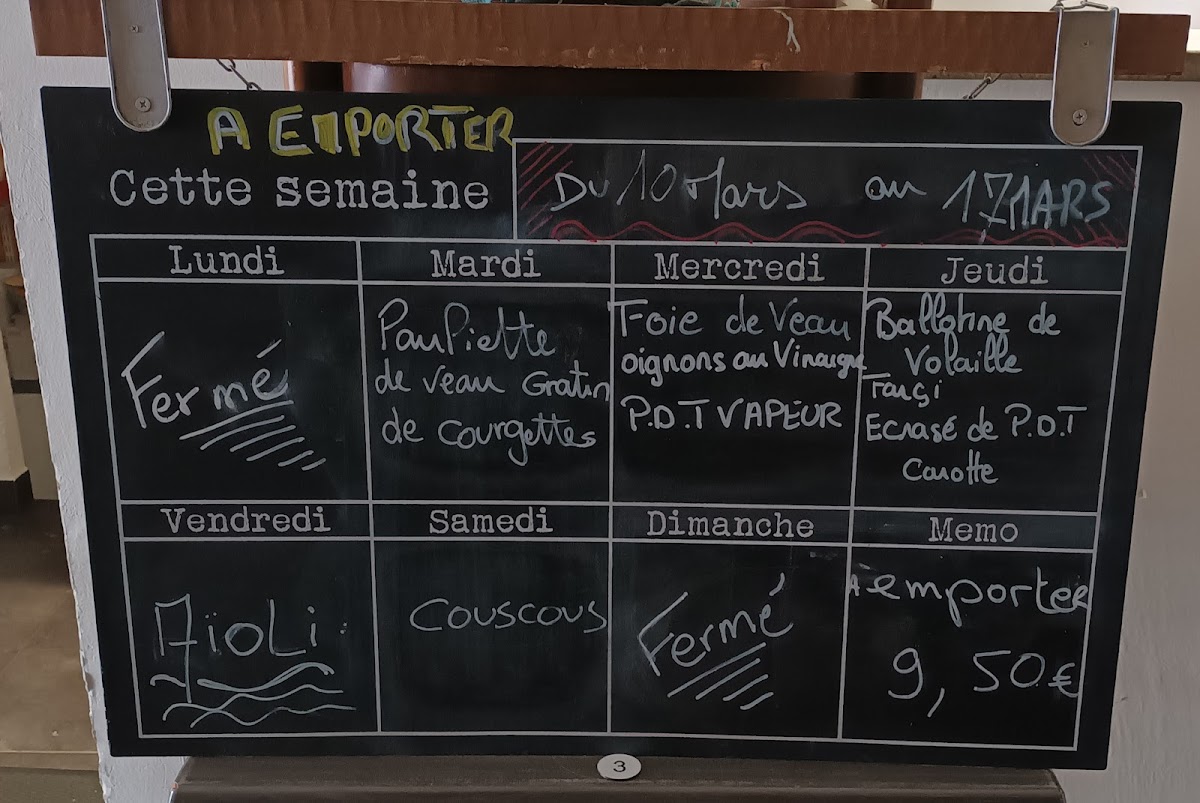 A EMPORTER
Cette semaine
Du 10 Mars au 17 MARS
Lundi
Mardi
Mercredi
Jeudi
Fermé
PauPiette
de veau Gratin
de courgettes
Foie de Veau
oignons au Vinaigre
P.D.T VAPEUR
Ballotine de
Volaille
Farçi
Ecrasé de P.D.T
Carotte
Vendredi
Samedi
Dimanche
Memo
AïoLi
COUSCOUS
Fermé
A emporter
9,50€
3